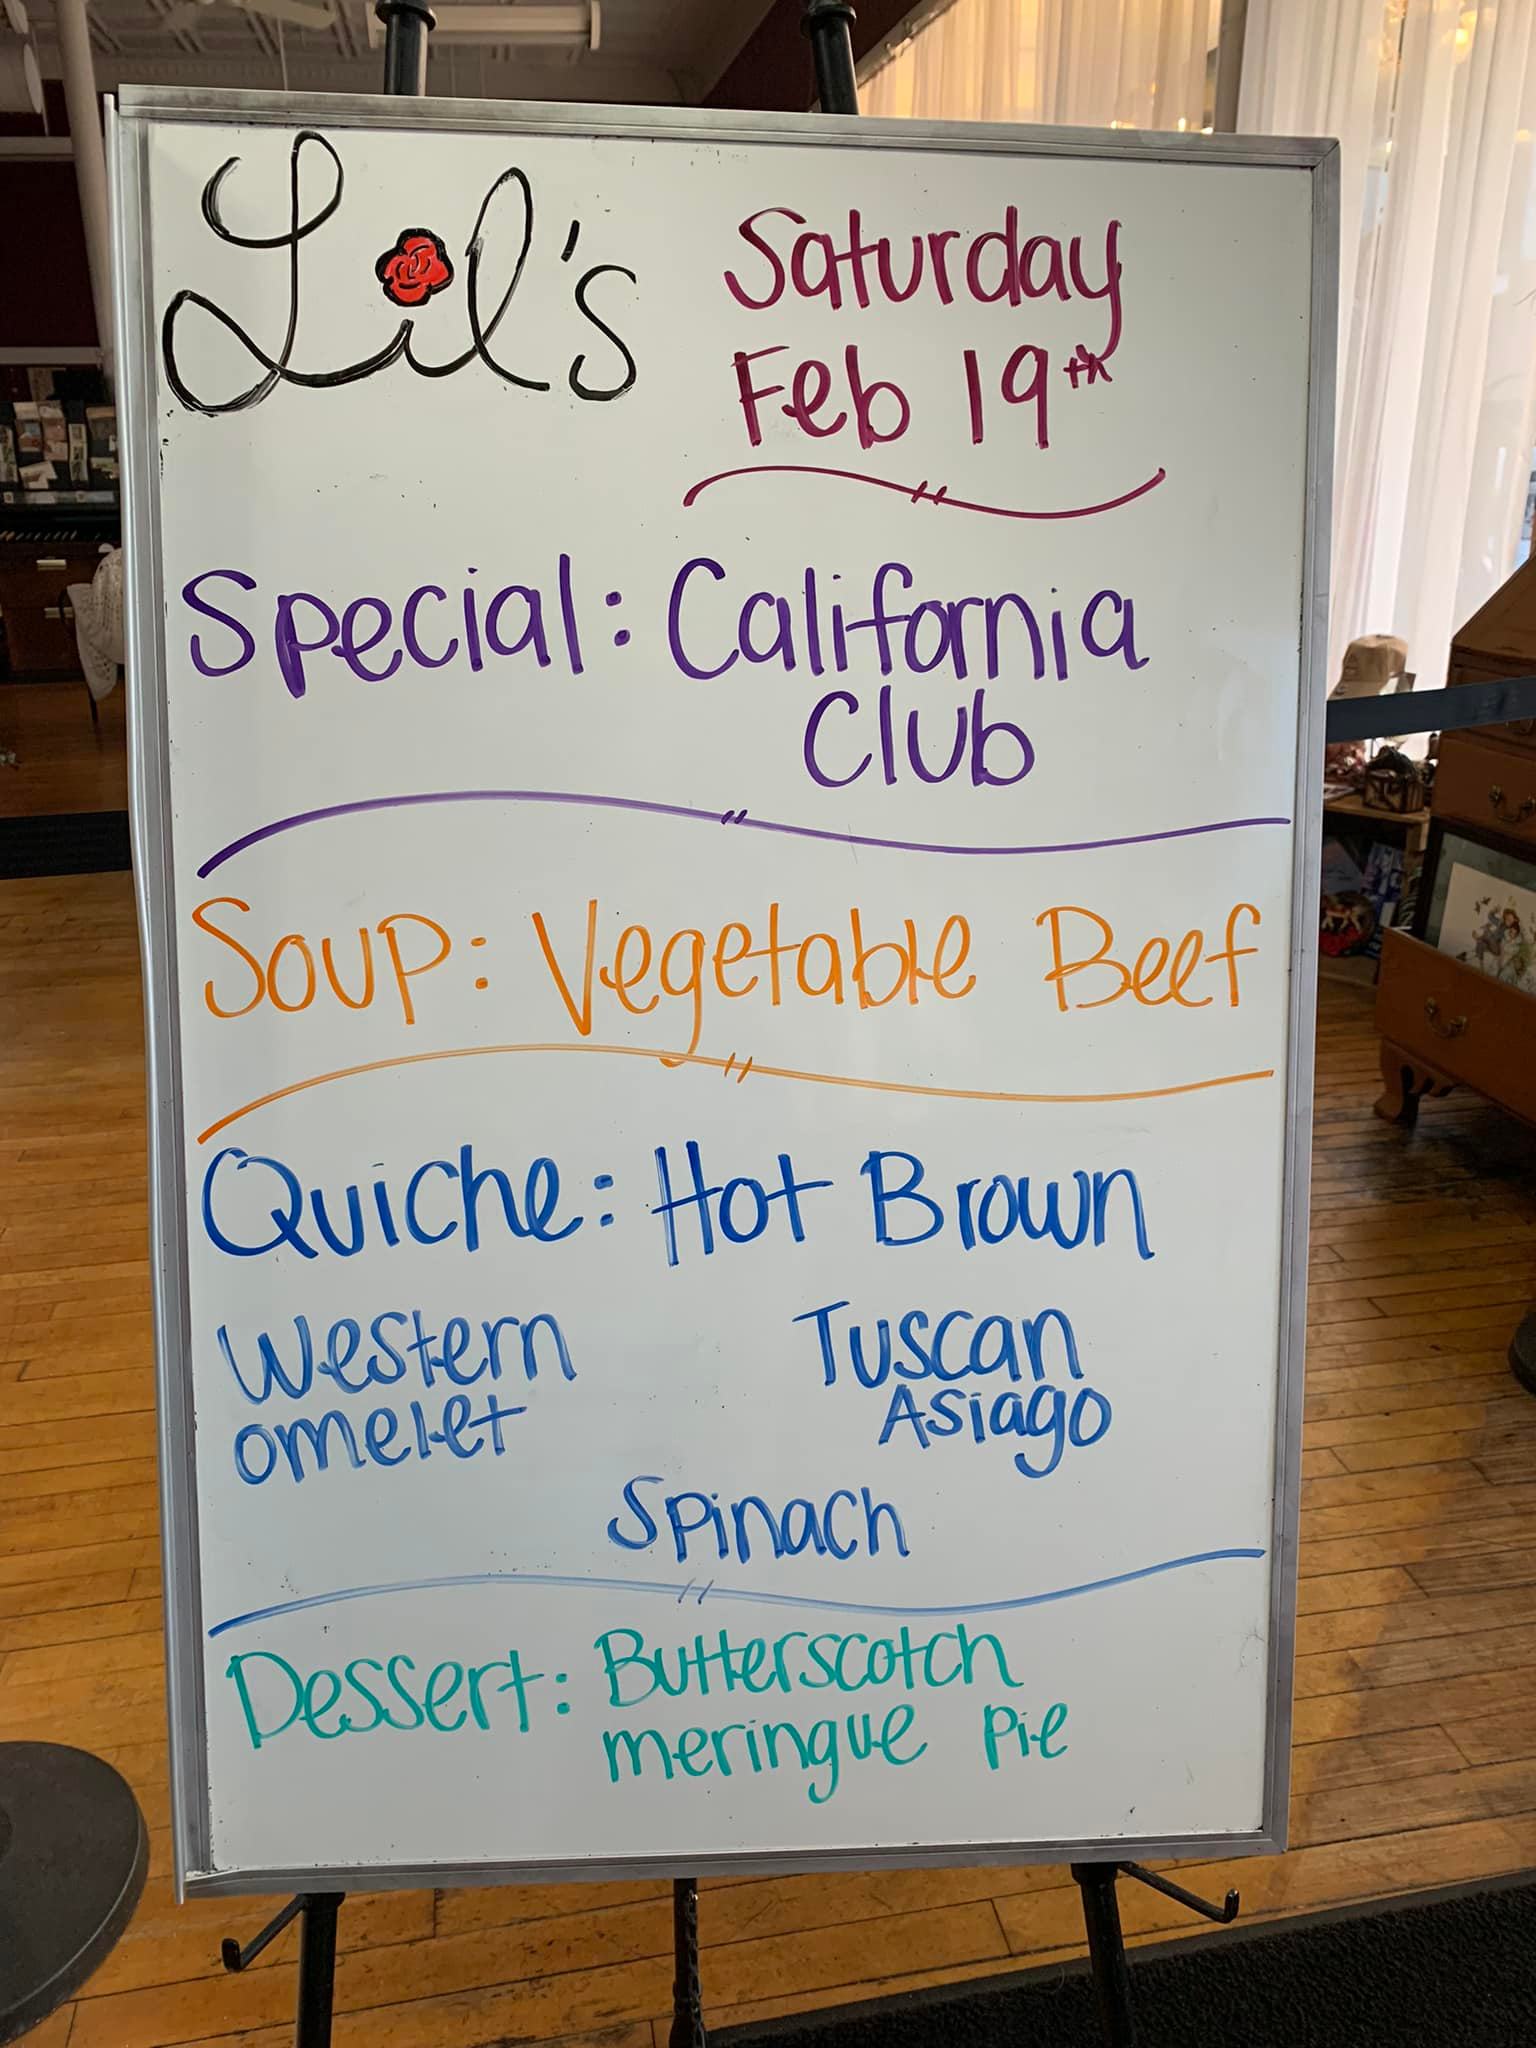 Lil's
Saturday
Feb 19th
Special: California
Club
Soup: Vegetable Beef
Quiche: Hot Brown
Western
omelet
Tuscan
Asiago
Spinach
Dessert: Butterscotch
meringue Pie